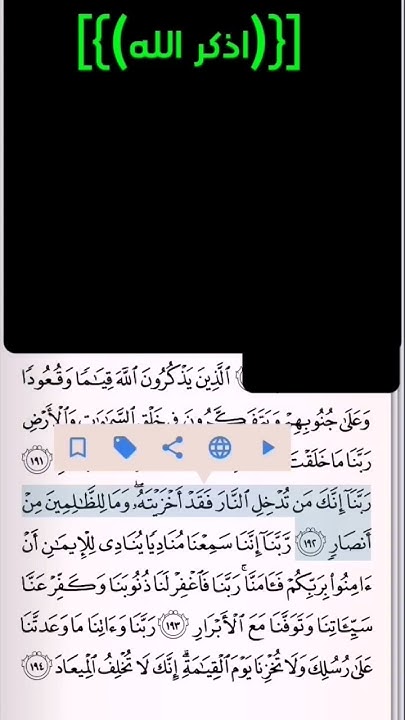 [{((اذكر الله))}]
ٱلَّذِينَ يَذۡكُرُونَ ٱللَّهَ قِيَٰمٗا وَقُعُودٗا
وَعَلَىٰ جُنُوبِهِمۡ وَيَتَفَكَّرُونَ فِي خَلۡقِ ٱلسَّمَٰوَٰتِ وَٱلۡأَرۡضِ
رَبَّنَا مَا خَلَقۡتَ ١٩١
رَبَّنَآ إِنَّكَ مَن تُدۡخِلِ ٱلنَّارَ فَقَدۡ أَخۡزَيۡتَهُۥۖ وَمَا لِلظَّٰلِمِينَ مِنۡ
أَنصَارٖ ١٩٢ رَّبَّنَآ إِنَّنَا سَمِعۡنَا مُنَادِيٗا يُنَادِي لِلۡإِيمَٰنِ أَنۡ
ءَامِنُواْ بِرَبِّكُمۡ فَـَٔامَنَّاۚ رَبَّنَا فَٱغۡفِرۡ لَنَا ذُنُوبَنَا وَكَفِّرۡ عَنَّا
سَيِّـَٔاتِنَا وَتَوَفَّنَا مَعَ ٱلۡأَبۡرَارِ ١٩٣ رَبَّنَا وَءَاتِنَا مَا وَعَدتَّنَا
عَلَىٰ رُسُلِكَ وَلَا تُخۡزِنَا يَوۡمَ ٱلۡقِيَٰمَةِۖ إِنَّكَ لَا تُخۡلِفُ ٱلۡمِيعَادَ ١٩٤